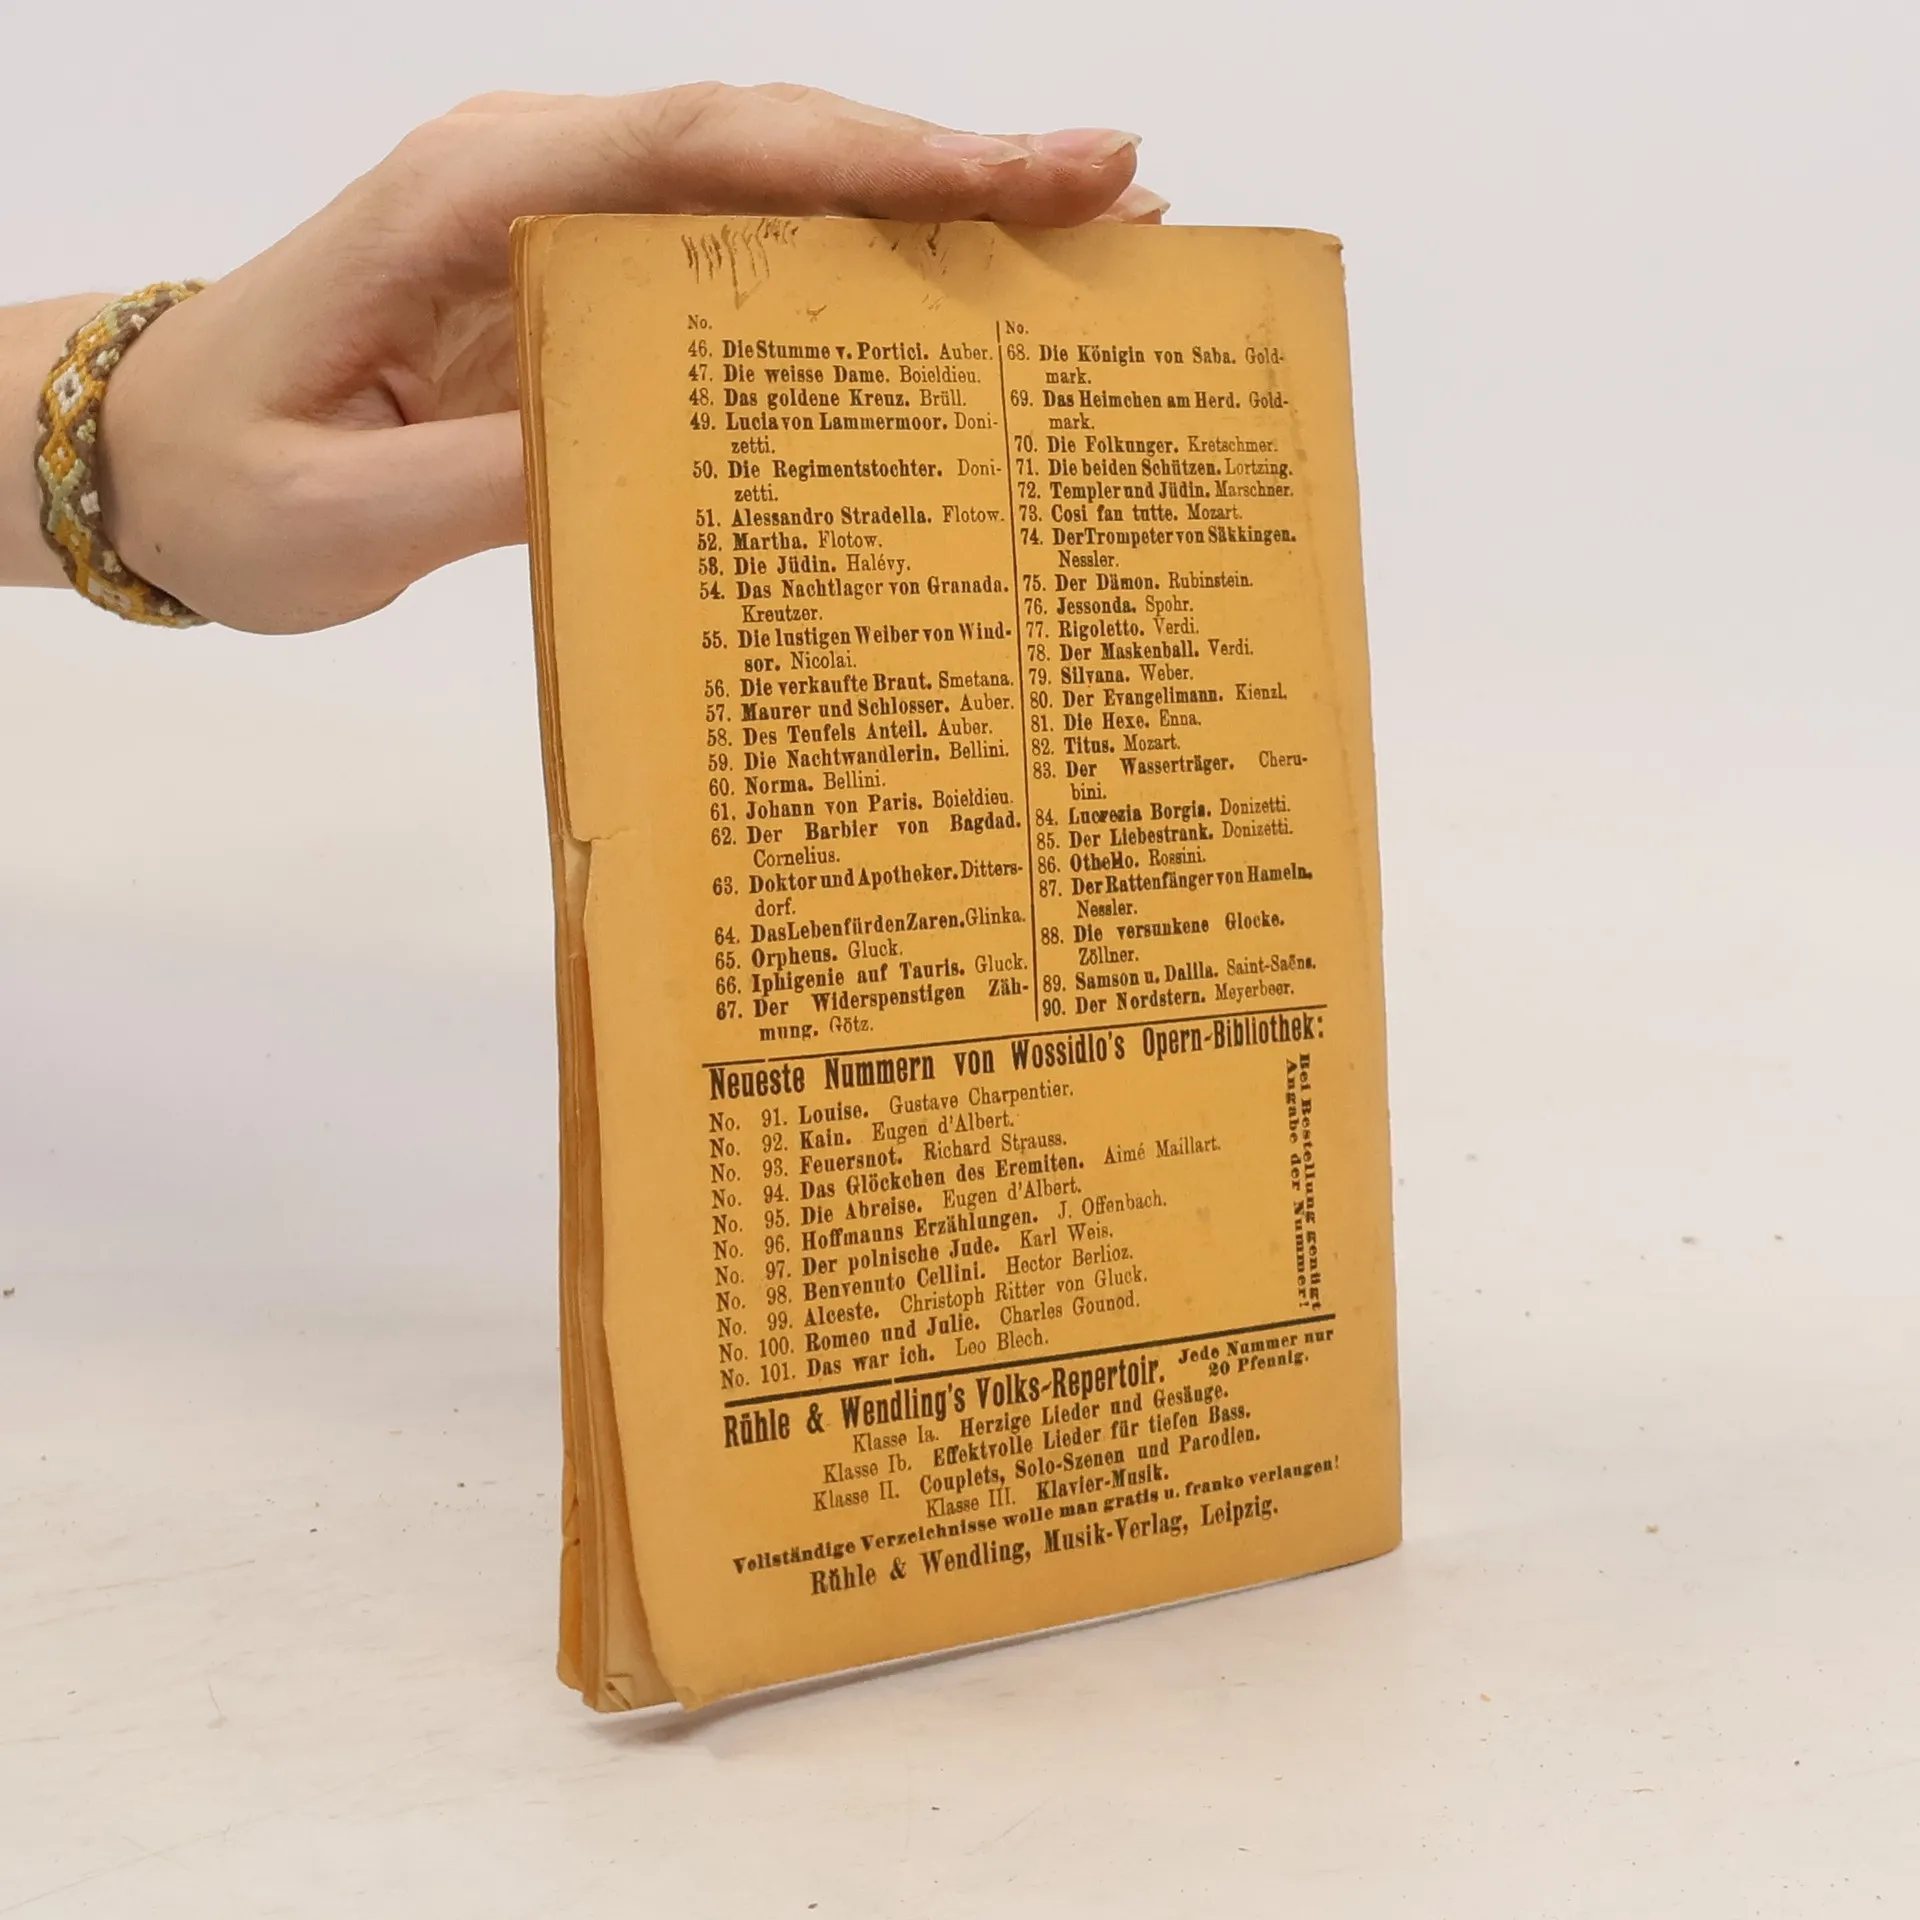 No.
46. Die Stumme v. Portici. Auber.
47. Die weisse Dame. Boieldieu.
48. Das goldene Kreuz. Brüll.
49. Lucia von Lammermoor. Doni-
zetti.
50. Die Regimentstochter. Doni-
zetti.
51. Alessandro Stradella. Flotow.
52. Martha. Flotow.
53. Die Jüdin. Halévy.
54. Das Nachtlager von Granada.
Kreutzer.
55. Die lustigen Weiber von Wind-
sor. Nicolai.
56. Die verkaufte Braut. Smetana.
57. Maurer und Schlosser. Auber.
58. Des Teufels Anteil. Auber.
59. Die Nachtwandlerin. Bellini.
60. Norma. Bellini.
61. Johann von Paris. Boieldieu.
62. Der Barbier von Bagdad.
Cornelius.
63. Doktor und Apotheker. Ditters-
dorf.
64. Das Leben für den Zaren. Glinka.
65. Orpheus. Gluck.
66. Iphigenie auf Tauris. Gluck.
67. Der Widerspenstigen Zäh-
mung. Götz.
No.
68. Die Königin von Saba. Gold-
mark.
69. Das Heimchen am Herd. Gold-
mark.
70. Die Folkunger. Kretschmer.
71. Die beiden Schützen. Lortzing.
72. Templer und Jüdin. Marschner.
73. Cosi fan tutte. Mozart.
74. Der Trompeter von Säkkingen.
Nessler.
75. Der Dämon. Rubinstein.
76. Jessonda. Spohr.
77. Rigoletto. Verdi.
78. Der Maskenball. Verdi.
79. Silvana. Weber.
80. Der Evangelimann. Kienzl.
81. Die Hexe. Enna.
82. Titus. Mozart.
83. Der Wasserträger. Cheru-
bini.
84. Lucrezia Borgia. Donizetti.
85. Der Liebestrank. Donizetti.
86. Othello. Rossini.
87. Der Rattenfänger von Hameln.
Nessler.
88. Die versunkene Glocke.
Zöllner.
89. Samson u. Dalila. Saint-Saëns.
90. Der Nordstern. Meyerbeer.
Neueste Nummern von Wossidlo's Opern-Bibliothek:
No. 91. Louise. Gustave Charpentier.
No. 92. Kain. Eugen d'Albert.
No. 93. Feuersnot. Richard Strauss.
No. 94. Das Glöckchen des Eremiten. Aimé Maillart.
No. 95. Die Abreise. Eugen d'Albert.
No. 96. Hoffmanns Erzählungen. J. Offenbach.
No. 97. Der polnische Jude. Karl Weis.
No. 98. Benvenuto Cellini. Hector Berlioz.
No. 99. Alceste. Christoph Ritter von Gluck.
No. 100. Romeo und Julie. Charles Gounod.
No. 101. Das war ich. Leo Blech.
Bei Bestellung genügt
Angabe der Nummer!
Rühle & Wendling's Volks-Repertoir. Jede Nummer nur
20 Pfennig.
Klasse Ia. Herzige Lieder und Gesänge.
Klasse Ib. Effektvolle Lieder für tiefen Bass.
Klasse II. Couplets, Solo-Szenen und Parodien.
Klasse III. Klavier-Musik.
Vollständige Verzeichnisse wolle man gratis u. franko verlangen!
Rühle & Wendling, Musik-Verlag, Leipzig.